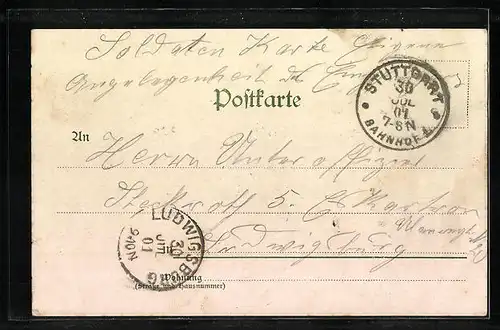 Soldaten Karte Eigene
Angelegenheit des
Postkarte
STUTTGART
30
JUL
01
7-8N
BAHNHOF
An
Herrn Unteroffizier
5. Eskadron
LUDWIGSBURG
30
JUL
01
9-10N
in Ludwigsburg
Wohnung
(Straße und Hausnummer)